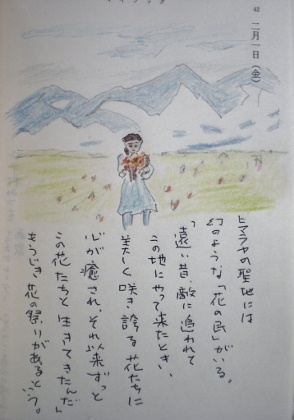 42 二月一日(金)
ヒマラヤの聖地には
幻のような「花の民」がいる。
「遠い昔、敵に追われて
この地にやって来たとき、
美しく咲き誇る花たちに
心が癒され、それ以来ずっと
この花たちと生きてきたんだ」
もうじき、花の祭りがあるという。